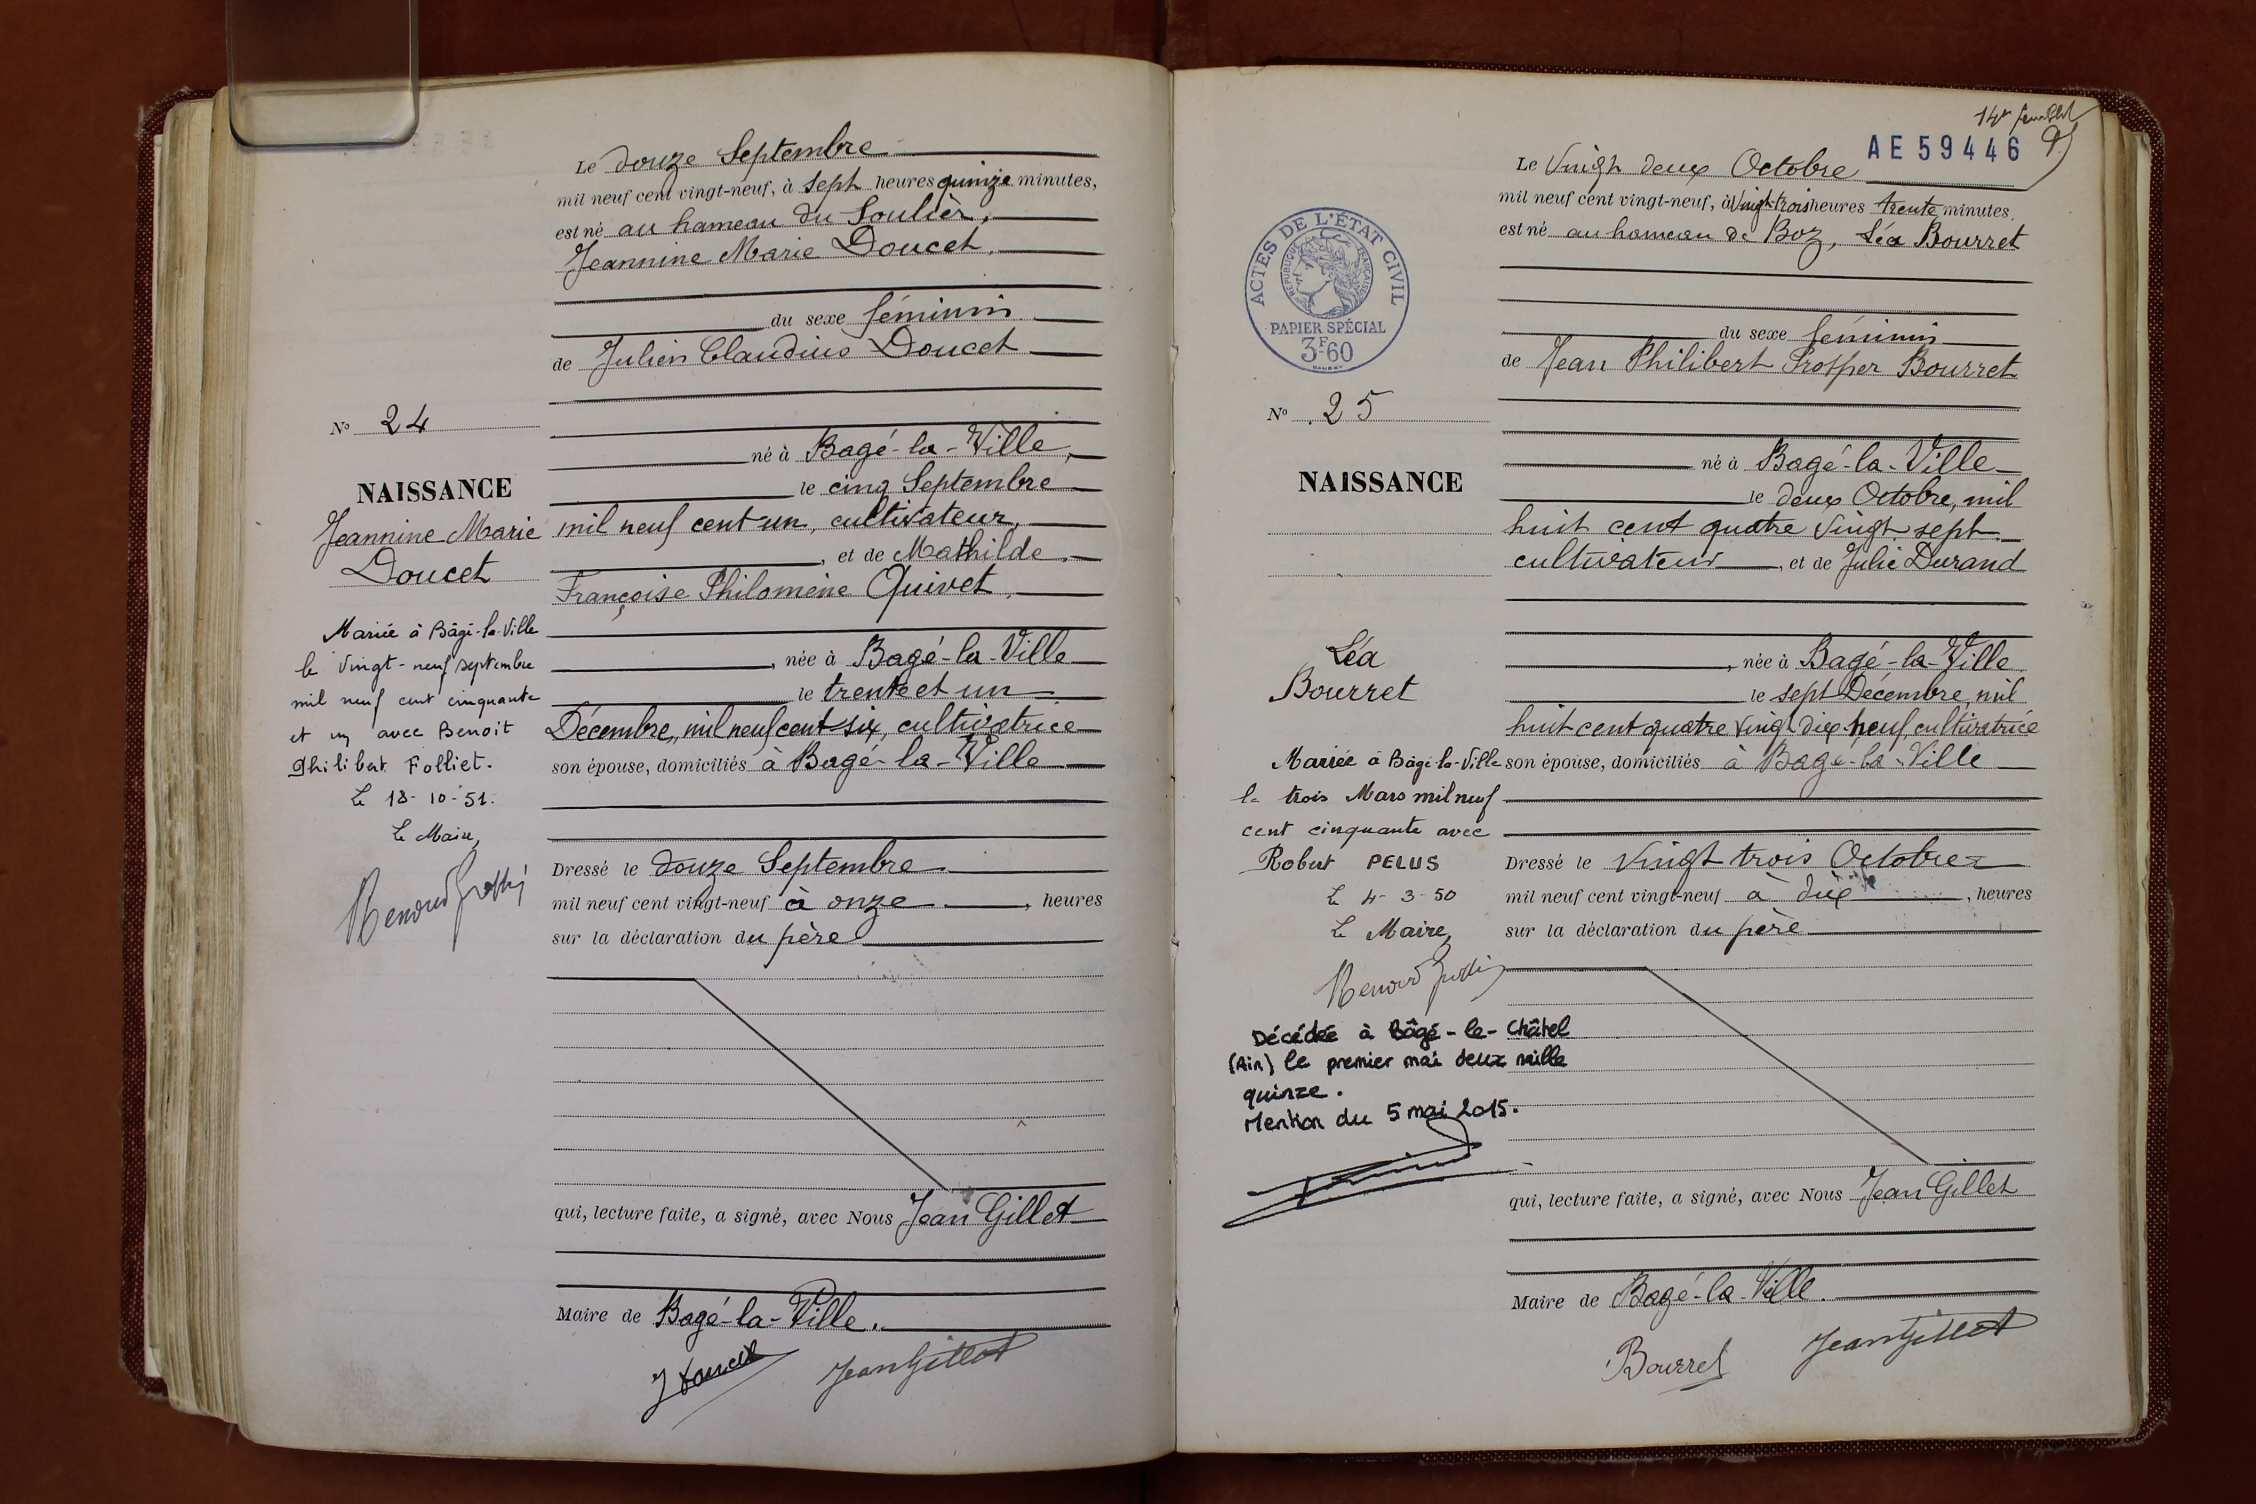 Le douze Septembre
mil neuf cent vingt-neuf, à sept heures quinze minutes,
est né au hameau du Soulier,
Jeannine Marie Doucet,
du sexe féminin
de Julien Claudius Doucet
Nº 24
né à Bagé-la-Ville,
NAISSANCE
le cinq Septembre
Jeannine Marie
mil neuf cent un, cultivateur,
Doucet
, et de Mathilde
Françoise Philomène Quivet,
Mariée à Bâgé-la-Ville
le vingt-neuf septembre
mil neuf cent cinquante
et un avec Benoit
Philibert Folliet.
Le 18-10-51.
Le Maire,
, née à Bagé-la-Ville
le trente et un
Décembre, mil neuf cent six, cultivatrice
son épouse, domiciliés à Bagé-la-Ville
Dressé le douze Septembre
mil neuf cent vingt-neuf à onze , heures
sur la déclaration du père
qui, lecture faite, a signé, avec Nous Jean Gillet
Maire de Bagé-la-Ville.
J Doucet
Jean Gillet
14e feuillet
AE 59446
Le Vingt deux Octobre
mil neuf cent vingt-neuf, à Vingt-trois heures trente minutes,
est né au hameau de Boz, Léa Bourret
ACTES DE L'ÉTAT CIVIL
RÉPUBLIQUE FRANÇAISE
PAPIER SPÉCIAL
3F60
du sexe féminin
de Jean Philibert Prosper Bourret
Nº 25
né à Bagé-la-Ville
NAISSANCE
le deux Octobre, mil
huit cent quatre vingt sept
cultivateur , et de Julie Durand
Léa
Bourret
, née à Bagé-la-Ville
le sept Décembre, mil
huit cent quatre vingt dix-neuf, cultivatrice
son épouse, domiciliés à Bagé-la-Ville
Mariée à Bâgé-la-Ville
le trois Mars mil neuf
cent cinquante avec
Robert PELUS
Le 4-3-50
Le Maire,
Dressé le vingt trois Octobre
mil neuf cent vingt-neuf à dix , heures
sur la déclaration du père
Décédée à Bâgé-le-Châtel
(Ain) le premier mai deux mille
quinze.
Mention du 5 mai 2015.
qui, lecture faite, a signé, avec Nous Jean Gillet
Maire de Bagé-la-Ville.
Bourret
Jean Gillet